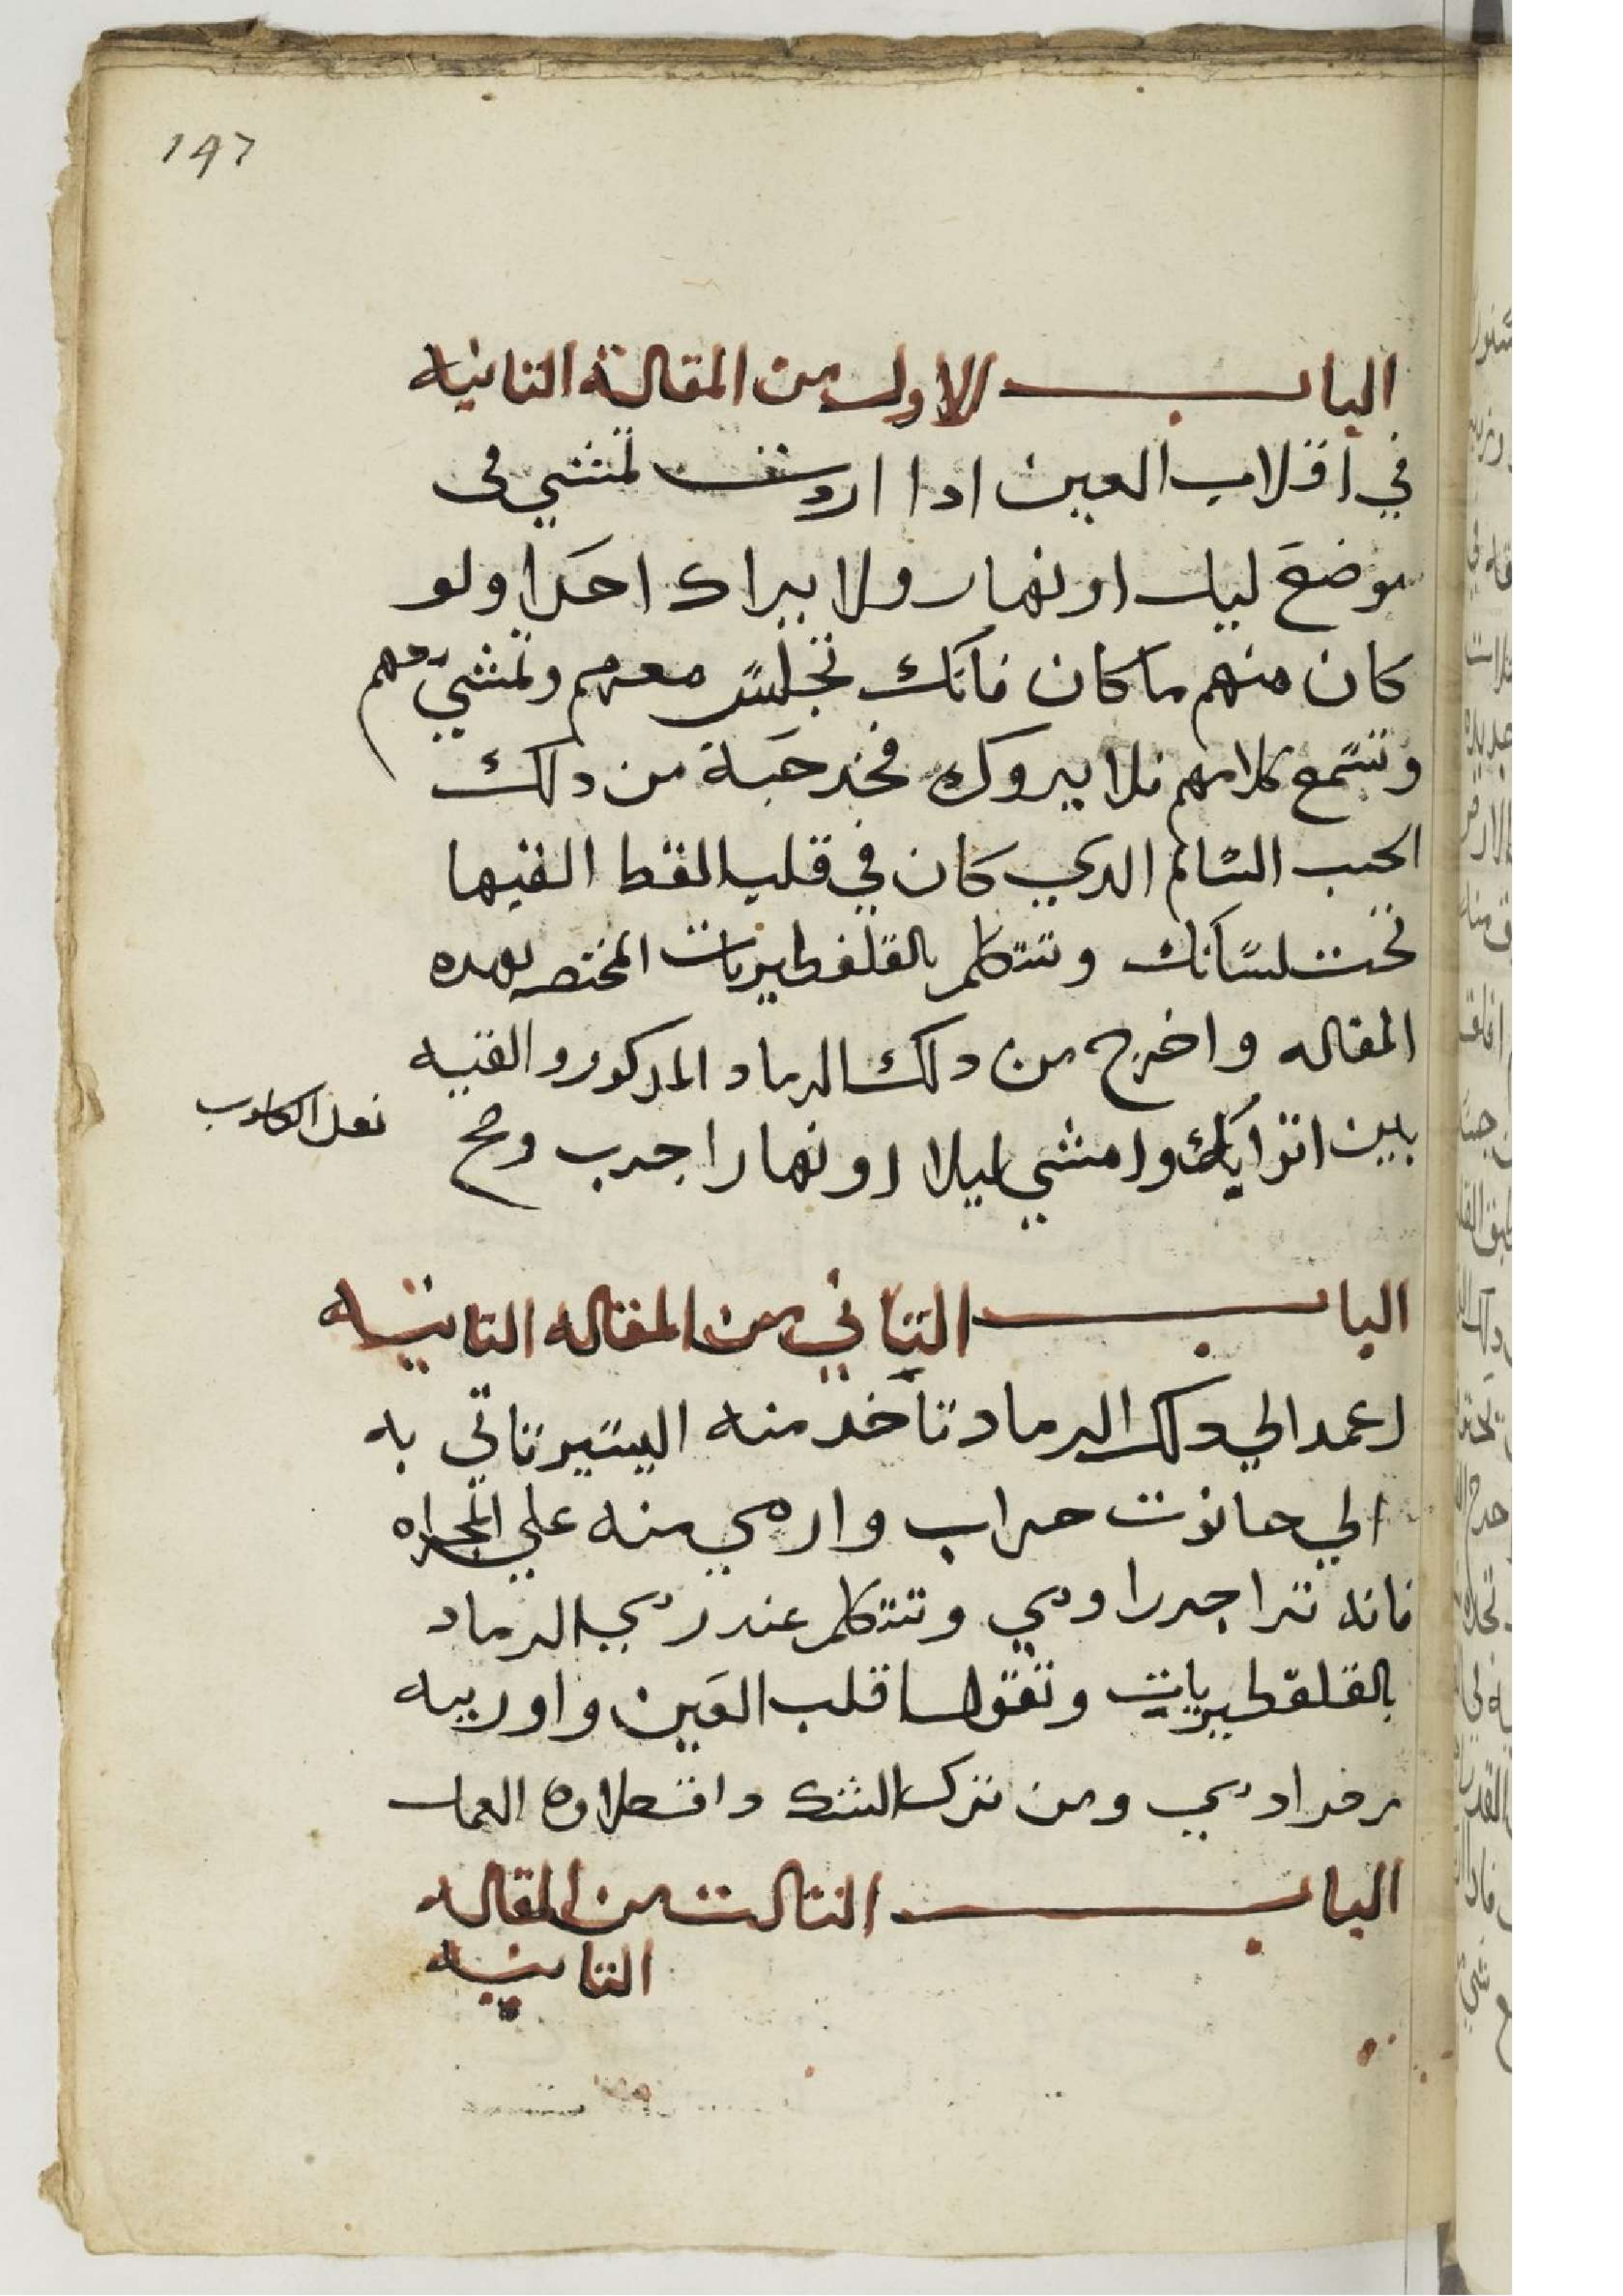 197
الباب الاول من المقالة التانيه
في اقلاب العين ادا اردت تمشي في
موضع ليل او نهار ولا يراك احدا ولو
كان منهم ما كان فانك تجلس معهم وتمشي معهم
وتسمع كلامهم فلا يروك فخد حبة من دلك
الحب السالم الدي كان في قلب القط القيها
تحت لسانك وتتكلم بالقلفطيريات المختصه بهده
المقاله واخرج من دلك الرماد المدكور والقيه
بين اترابك وامشي ليلا او نهارا جرب وصح
الباب التاني من المقاله التانيه
اعمد الي دلك الرماد تاخد منه اليسير تاتي به
الي حانوت خراب وارمي منه علي
فانه ترا وتتكلم عند رمي الرماد
بالقلفطيريات وتقول يا قلب العين
ومن ترك الشك العمل
الباب التالت من المقاله
التانيه